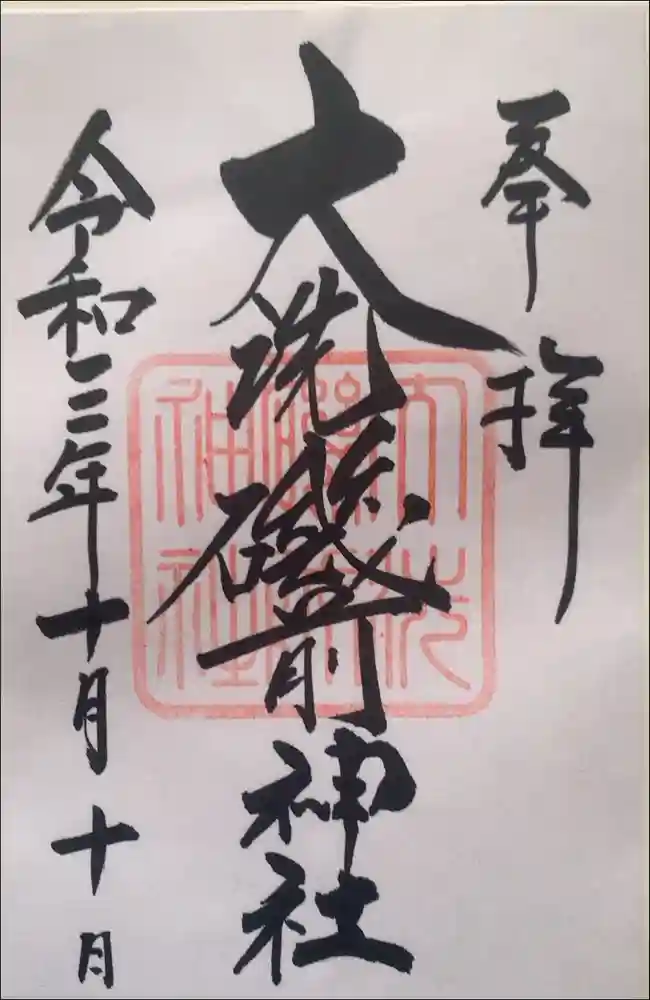 奉拝
大洗磯前神社
令和三年十月十日
大洗
磯前
神社